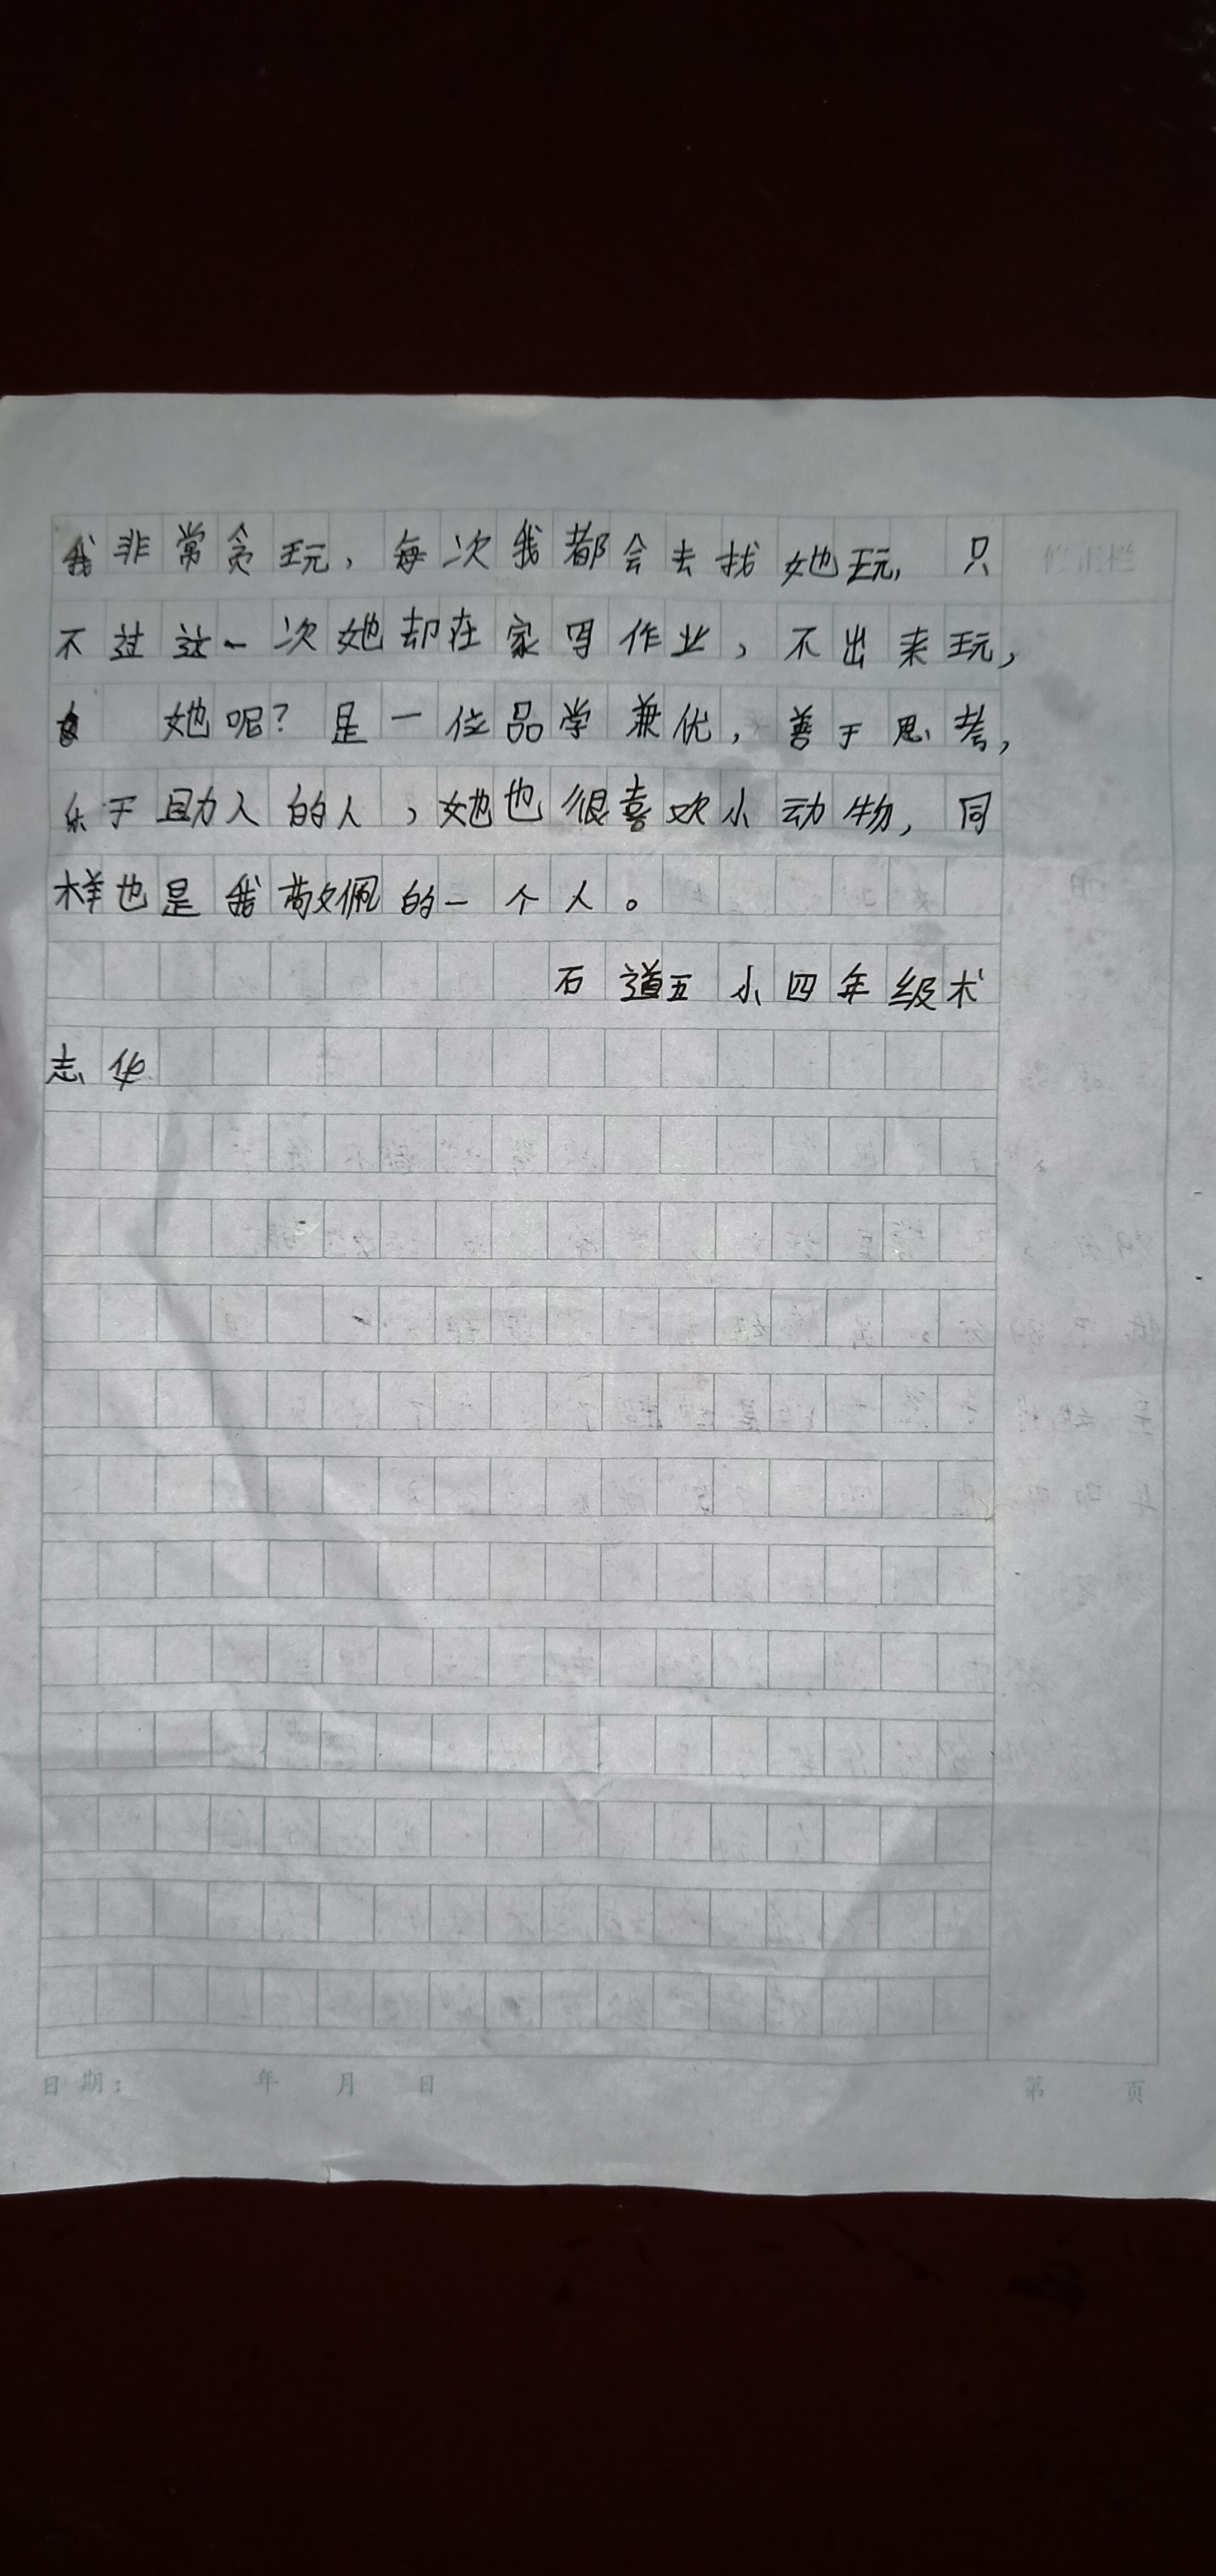 我非常贪玩，每次我都会去找她玩，只
不过这一次她却在家写作业，不出来玩，
她呢？是一位品学兼优，善于思考，
乐于助人的人，她也很喜欢小动物，同
样也是我敬佩的一个人。
石道五小四年级术
志华
日期： 年 月 日
第 页